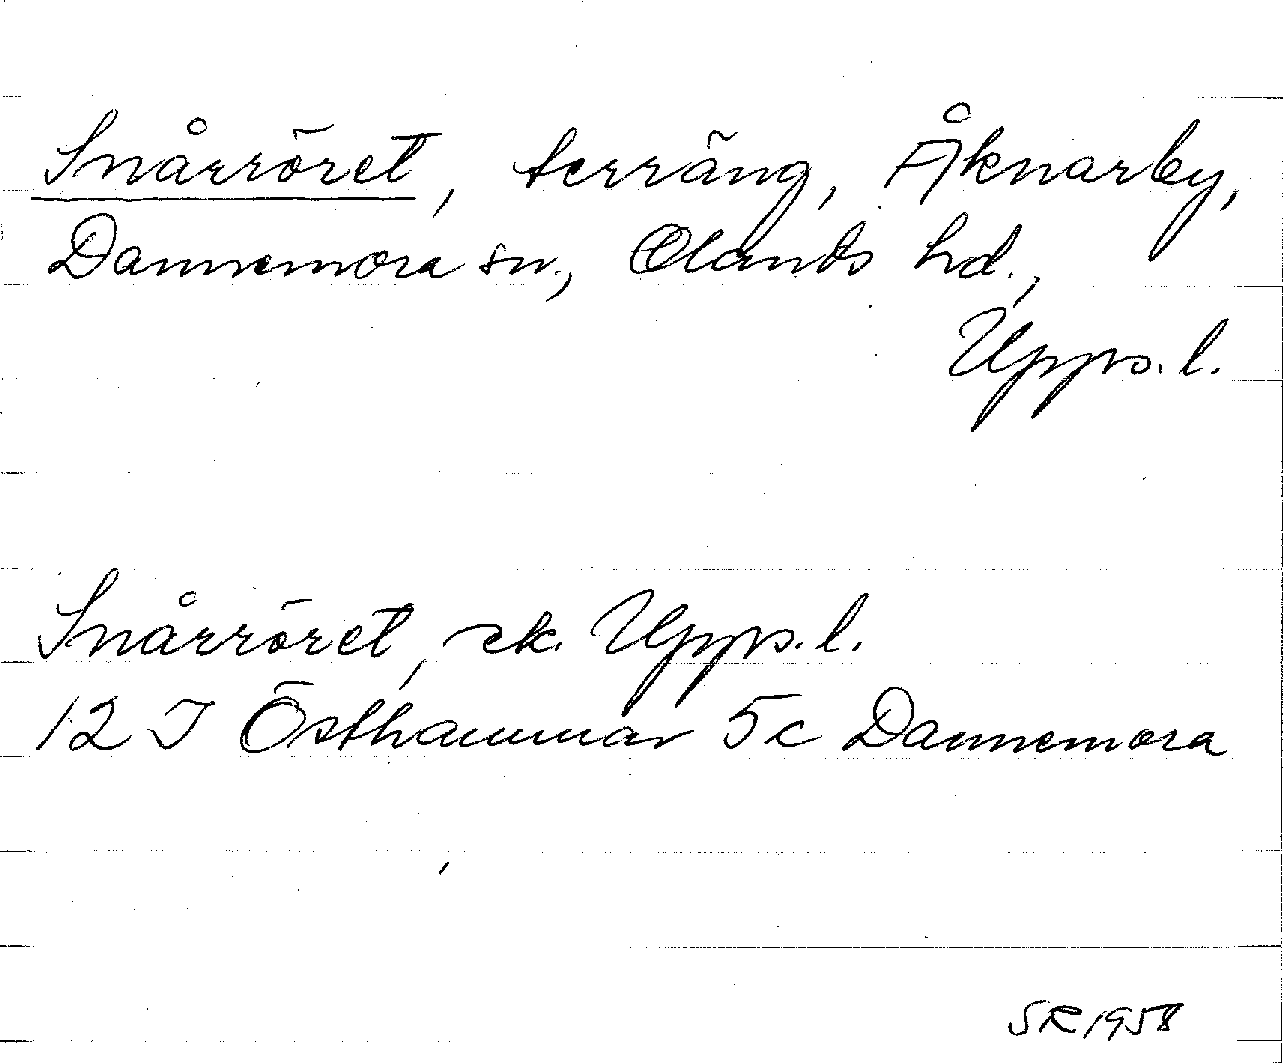 Snårröret, terräng, Åknarby,
Dannemora sn., Olands hd.,
Upps. l.
Snårröret, ek. Upps. l.
12 I Östhammar 5c Dannemora
SR 1958